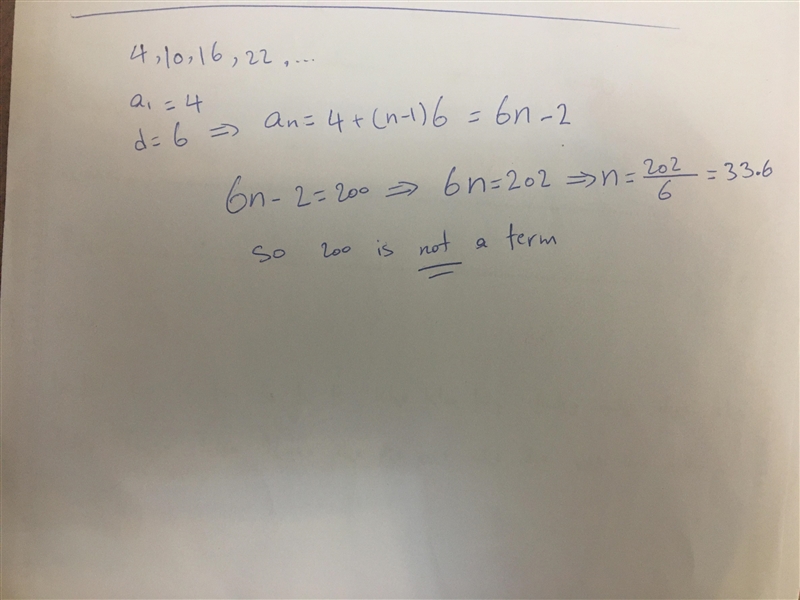 4, 10, 16, 22, ...
a₁ = 4
d = 6 ⇒ an = 4 + (n-1)6 = 6n - 2
6n - 2 = 200 ⇒ 6n = 202 ⇒ n = 202/6 = 33.6
So 200 is not a term